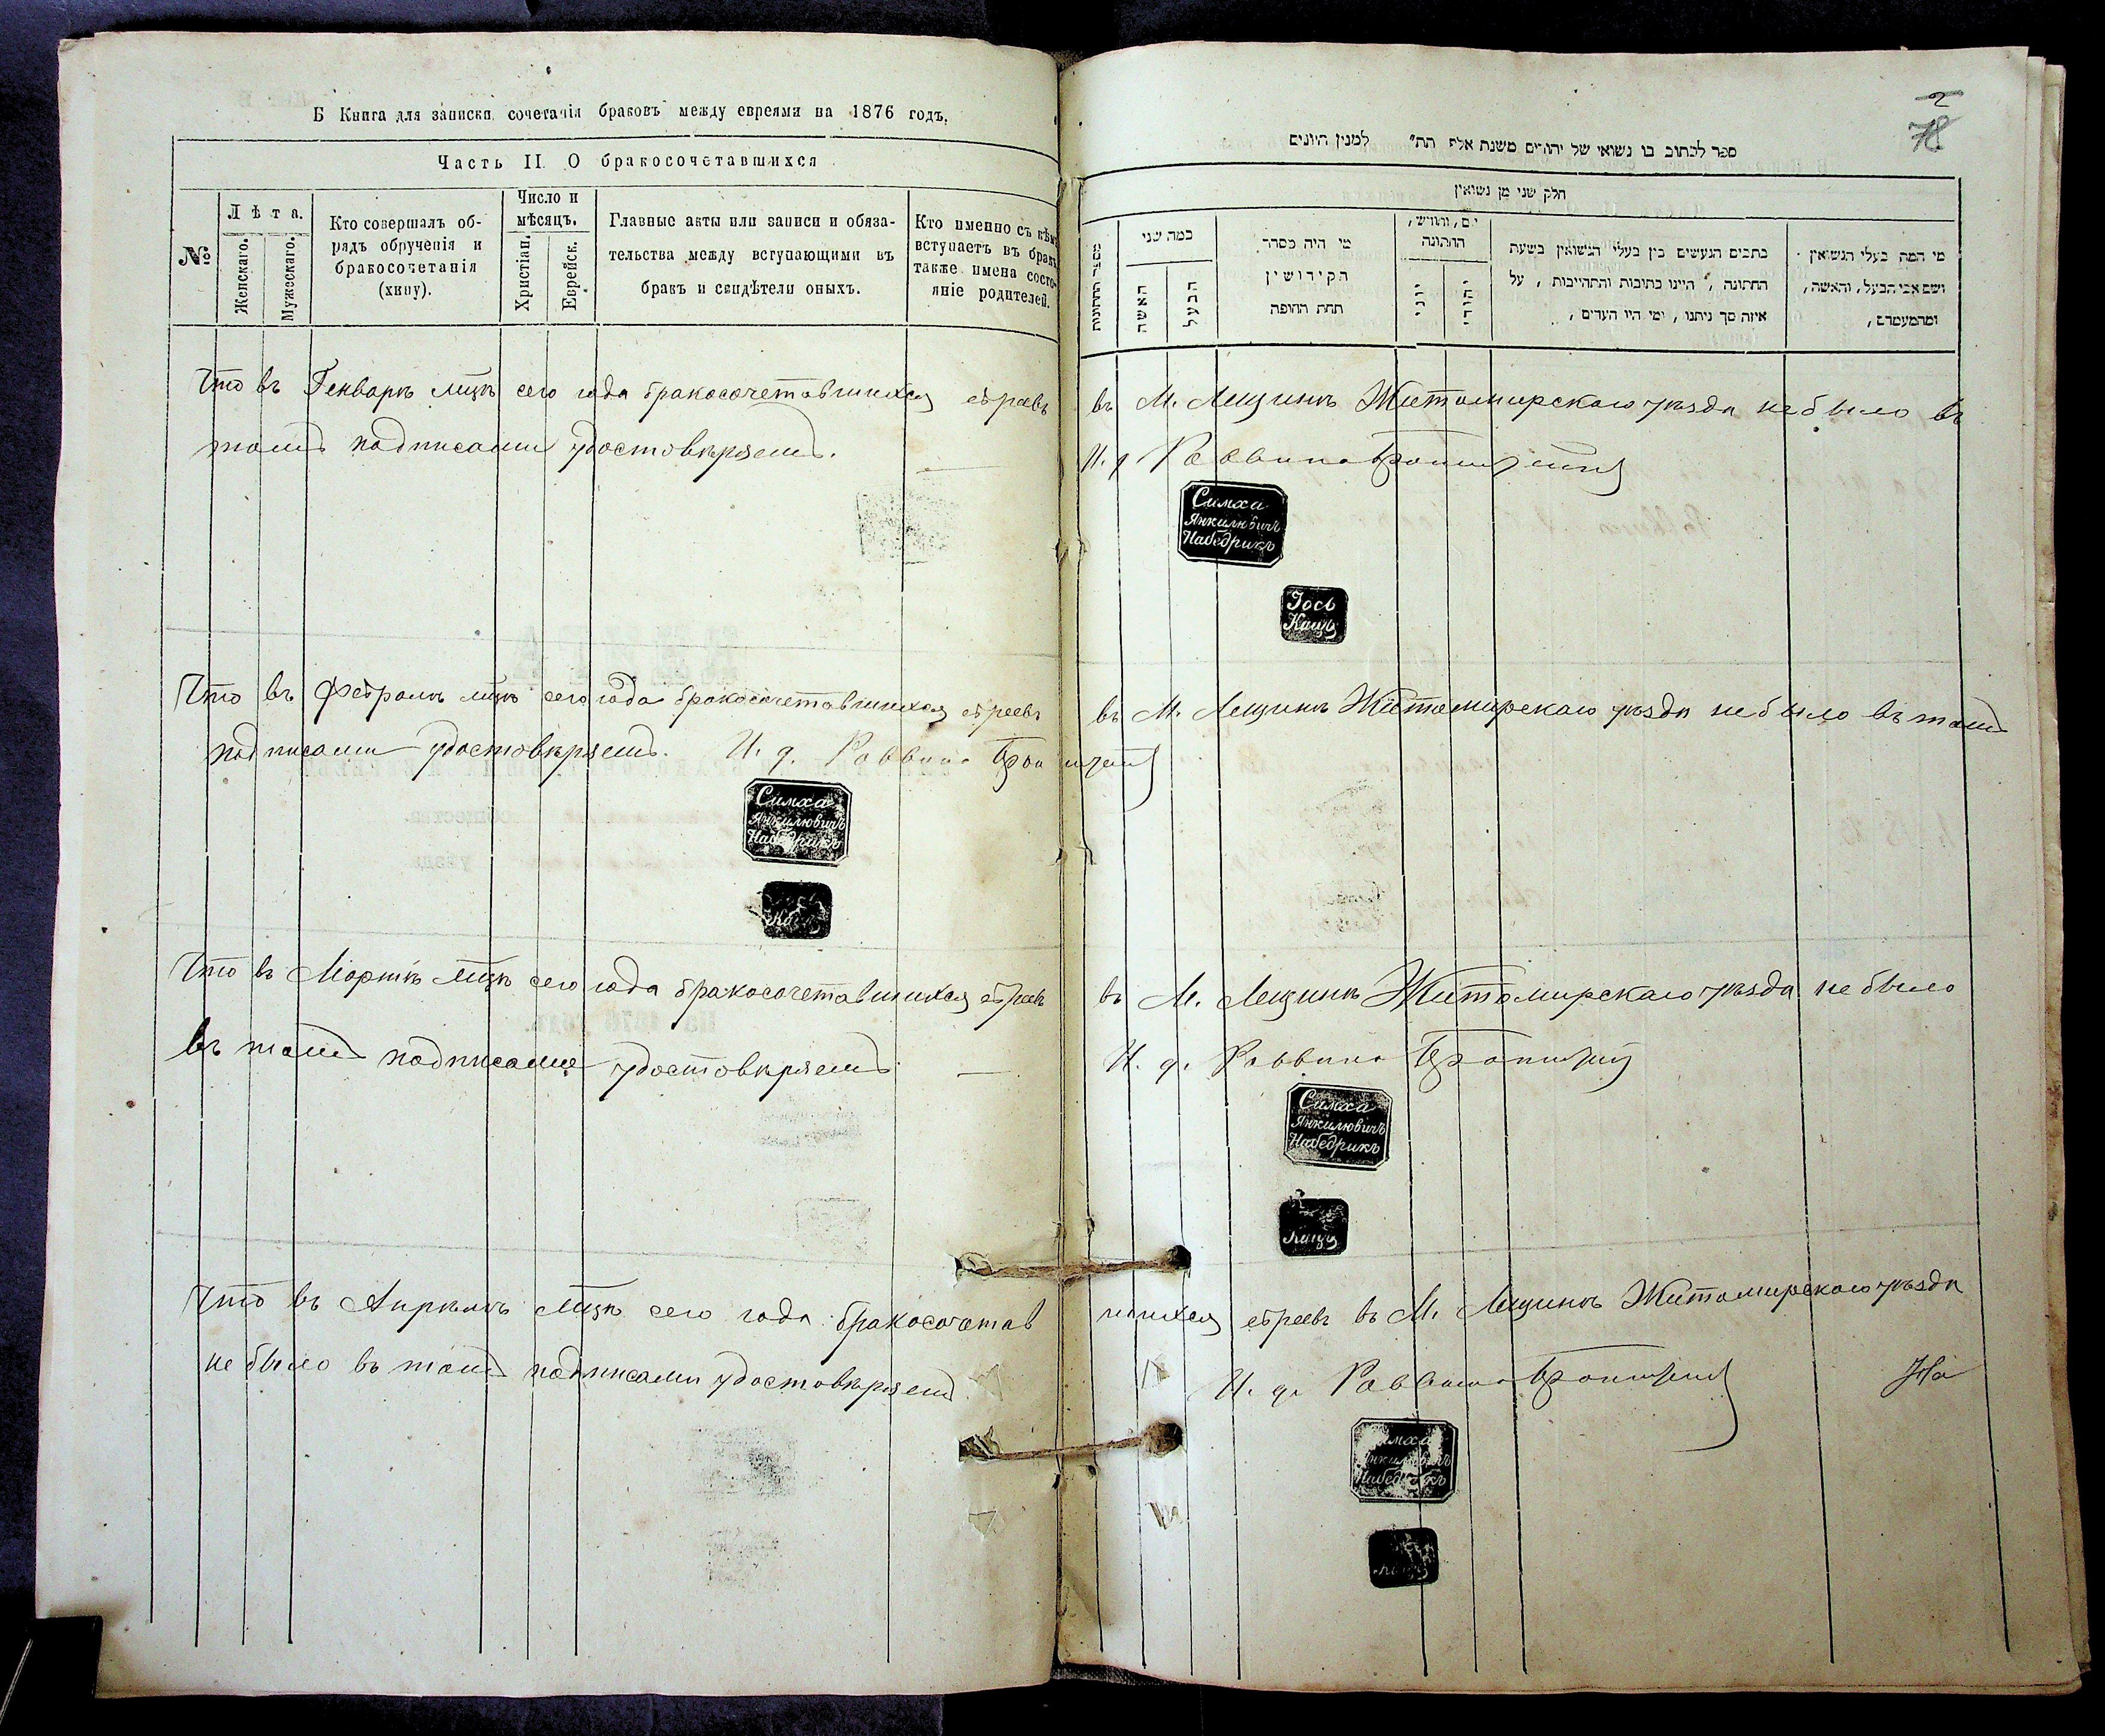 Б Книга для записки сочетанія браковъ между евреями на 1876 годъ.
Часть II. О бракосочетавшихся
№
Лѣта.
Женскаго.
Мужескаго.
Кто совершалъ об-
рядъ обрученія и
бракосочетанія
(хипу).
Число и
мѣсяцъ.
Христіан.
Еврейск.
Главные акты или записи и обяза-
тельства между вступающими въ
бракъ и свидѣтели оныхъ.
Кто именно съ кѣмъ
вступаетъ въ бракъ
также имена состо-
яніе родителей.
2
78
ספר לכתוב בו נשואי של יהודים משנת אלף תת״ למנין היונים
חלק שני מן נשואין
במה שני
האשה
הבעל
מי היה מסדר
הקידושין
תחת החופה
יום, וחודש,
החתונה
יוני
יהודי
כתבים הנעשים בין בעלי הנשואין בשעת
החתונה, היינו כתובות והתחייבות, על
איזה סך ניתנו, ומי היו העדים,
מי המה בעלי הנשואין
ושם אבי הבעל, והאשה,
ומהמעמדם,
Что въ Генварѣ мцѣ сего года бракосочетавшихся евреевъ въ М. Лещинѣ Житомирскаго уѣзда не было въ
томъ подписами удостовѣряемъ. И. д. Раввина
Симха
Янкилювичъ
Набедрикъ
Іось
Кацъ
Что въ Февралѣ мцѣ сего года бракосочетавшихся евреевъ въ М. Лещинѣ Житомирскаго уѣзда не было въ томъ
подписами удостовѣряемъ. И. д. Раввина
Симха
Янкилювичъ
Набедрикъ
Что въ Мартѣ мцѣ сего года бракосочетавшихся евреевъ въ М. Лещинѣ Житомирскаго уѣзда не было
въ томъ подписами удостовѣряемъ И. д. Раввина
Симха
Янкилювичъ
Набедрикъ
Кацъ
Что въ Апрѣлѣ мцѣ сего года бракосочетавшихся евреевъ въ М. Лещинѣ Житомирскаго уѣзда
не было въ томъ подписами удостовѣряемъ И. д. Раввина На
Симха
Янкилювичъ
Набедрикъ